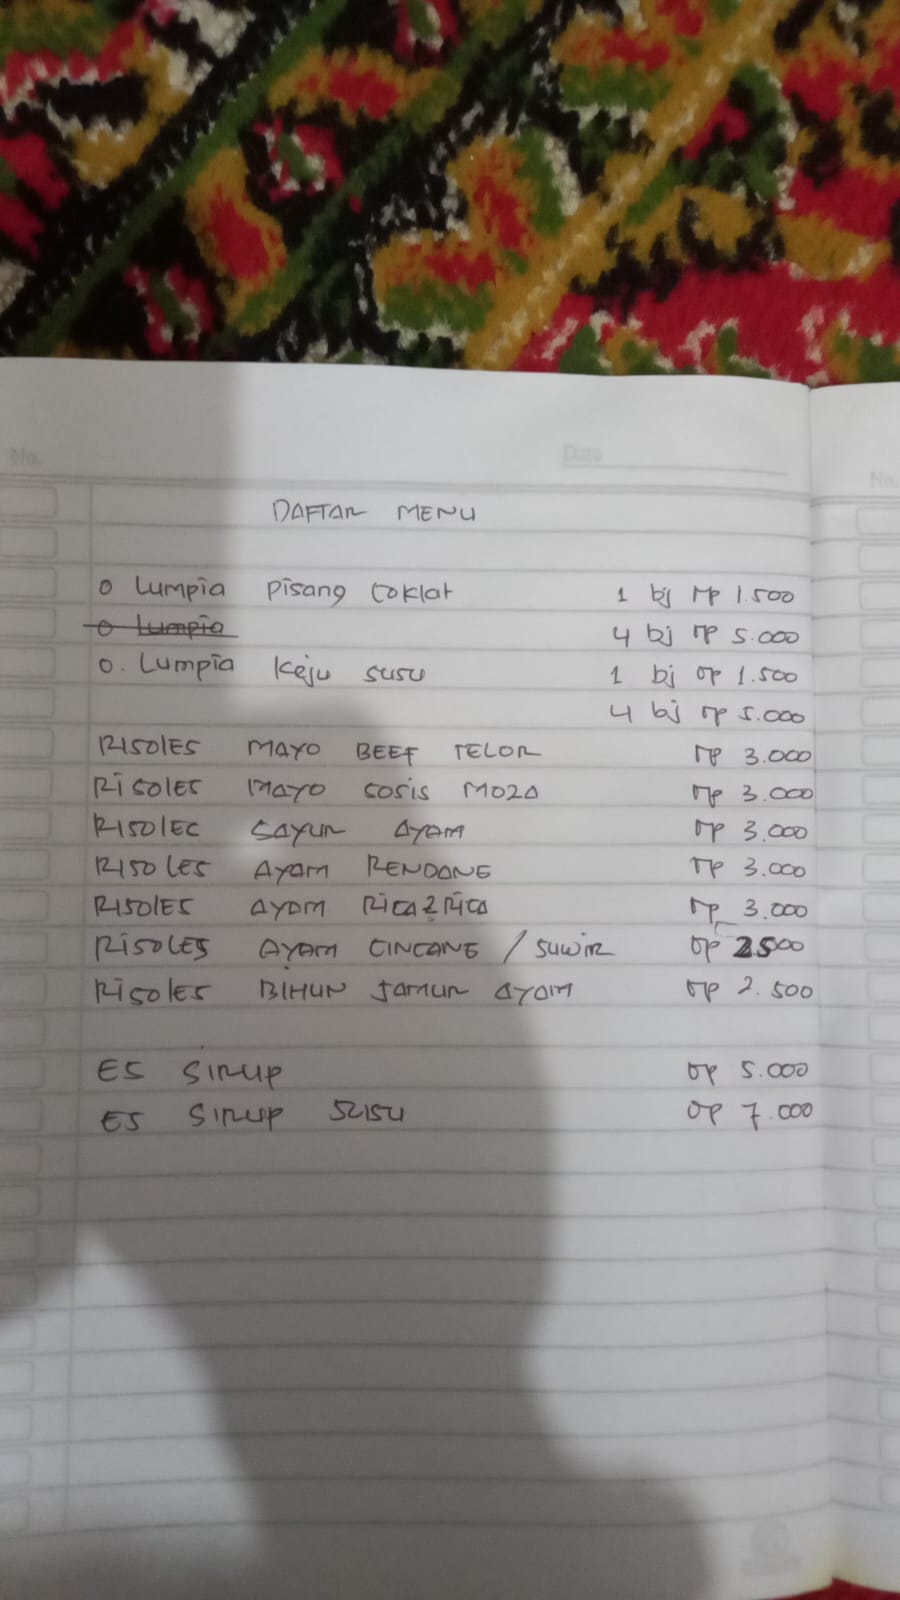 No.
Date
No.
DAFTAR MENU
o Lumpia pisang coklat 1 bj rp 1.500
o Lumpia 4 bj rp 5.000
o. Lumpia keju susu 1 bj rp 1.500
4 bj rp 5.000
RISOLES MAYO BEEF TELOR rp 3.000
RiSOLES MAYO SOSIS MOZA rp 3.000
RISOLES SAYUR AYAM rp 3.000
RISOLES AYAM RENDANG rp 3.000
RISOLES AYAM RICA2 RICA rp 3.000
RISOLES AYAM CINCANG / SUWIR rp 2500
RISOLES BIHUN JAMUR AYAM rp 2.500
ES SIRUP rp 5.000
ES SIRUP SUSU rp 7.000